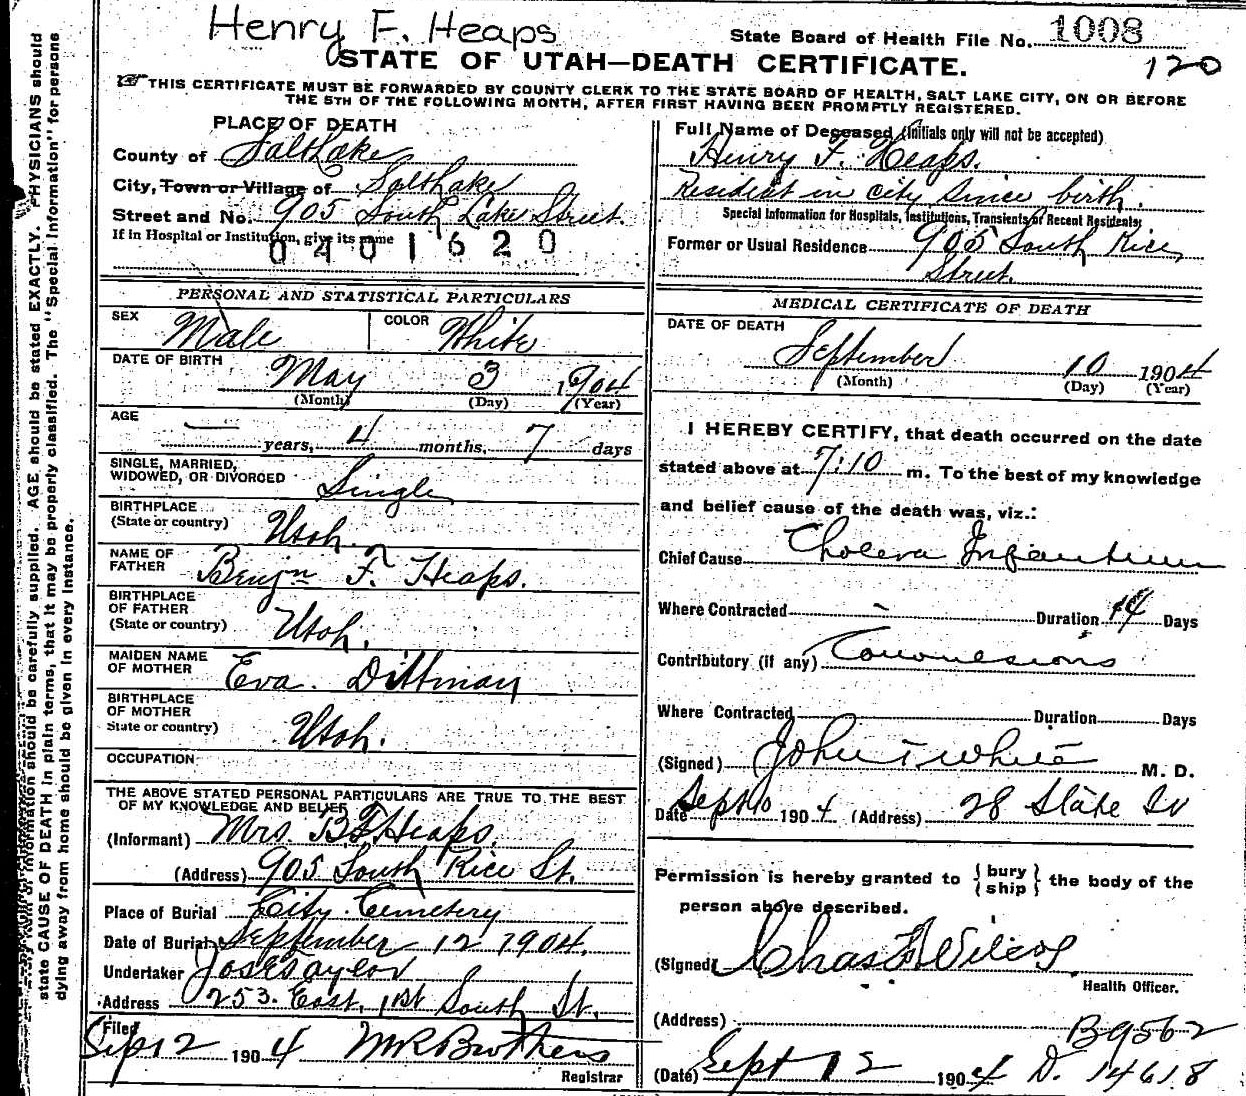 Henry F. Heaps
State Board of Health File No. 1008
120
STATE OF UTAH—DEATH CERTIFICATE.
THIS CERTIFICATE MUST BE FORWARDED BY COUNTY CLERK TO THE STATE BOARD OF HEALTH, SALT LAKE CITY, ON OR BEFORE
THE 5TH OF THE FOLLOWING MONTH, AFTER FIRST HAVING BEEN PROMPTLY REGISTERED.
PLACE OF DEATH
County of Salt Lake
City, Town or Village of Salt Lake
Street and No. 905 South Lake Street
If in Hospital or Institution, give its name
0401620
PERSONAL AND STATISTICAL PARTICULARS
SEX Male COLOR White
DATE OF BIRTH May 3 1904
(Month) (Day) (Year)
AGE
— years, 4 months, 7 days
SINGLE, MARRIED,
WIDOWED, OR DIVORCED Single
BIRTHPLACE
(State or country) Utah.
NAME OF
FATHER Benjn F. Heaps.
BIRTHPLACE
OF FATHER
(State or country) Utah.
MAIDEN NAME
OF MOTHER Eva. Dittman
BIRTHPLACE
OF MOTHER
State or country) Utah.
OCCUPATION
THE ABOVE STATED PERSONAL PARTICULARS ARE TRUE TO THE BEST
OF MY KNOWLEDGE AND BELIEF
(Informant) Mrs. B. F. Heaps.
(Address) 905 South Rice St.
Place of Burial City Cemetery
Date of Burial September 12 1904.
Undertaker Jos E Taylor
Address 253. East. 1st South St.
Filed
Sep 12 1904 M R Brothers
Registrar
Full Name of Deceased (Initials only will not be accepted)
Henry F. Heaps.
Resident in city since birth.
Special Information for Hospitals, Institutions, Transients, or Recent Residents:
Former or Usual Residence 905 South Rice
Street.
MEDICAL CERTIFICATE OF DEATH
DATE OF DEATH
September 10 1904
(Month) (Day) (Year)
I HEREBY CERTIFY, that death occurred on the date
stated above at 7:10 m. To the best of my knowledge
and belief cause of the death was, viz.:
Chief Cause Cholera Infantum
Where Contracted - Duration 14 Days
Contributory (if any) Convulsions
Where Contracted Duration Days
(Signed) John T White M. D.
Date Sept 10 1904 (Address) 28 State St
Permission is hereby granted to { bury / ship } the body of the
person above described.
(Signed) Chas F Wilcox
Health Officer.
(Address)
B9562
(Date) Sept 12 1904 D. 14618
state CAUSE OF DEATH in plain terms, that it may be properly classified. The "Special Information" for persons
dying away from home should be given in every instance.
information should be carefully supplied. AGE should be stated EXACTLY. PHYSICIANS should